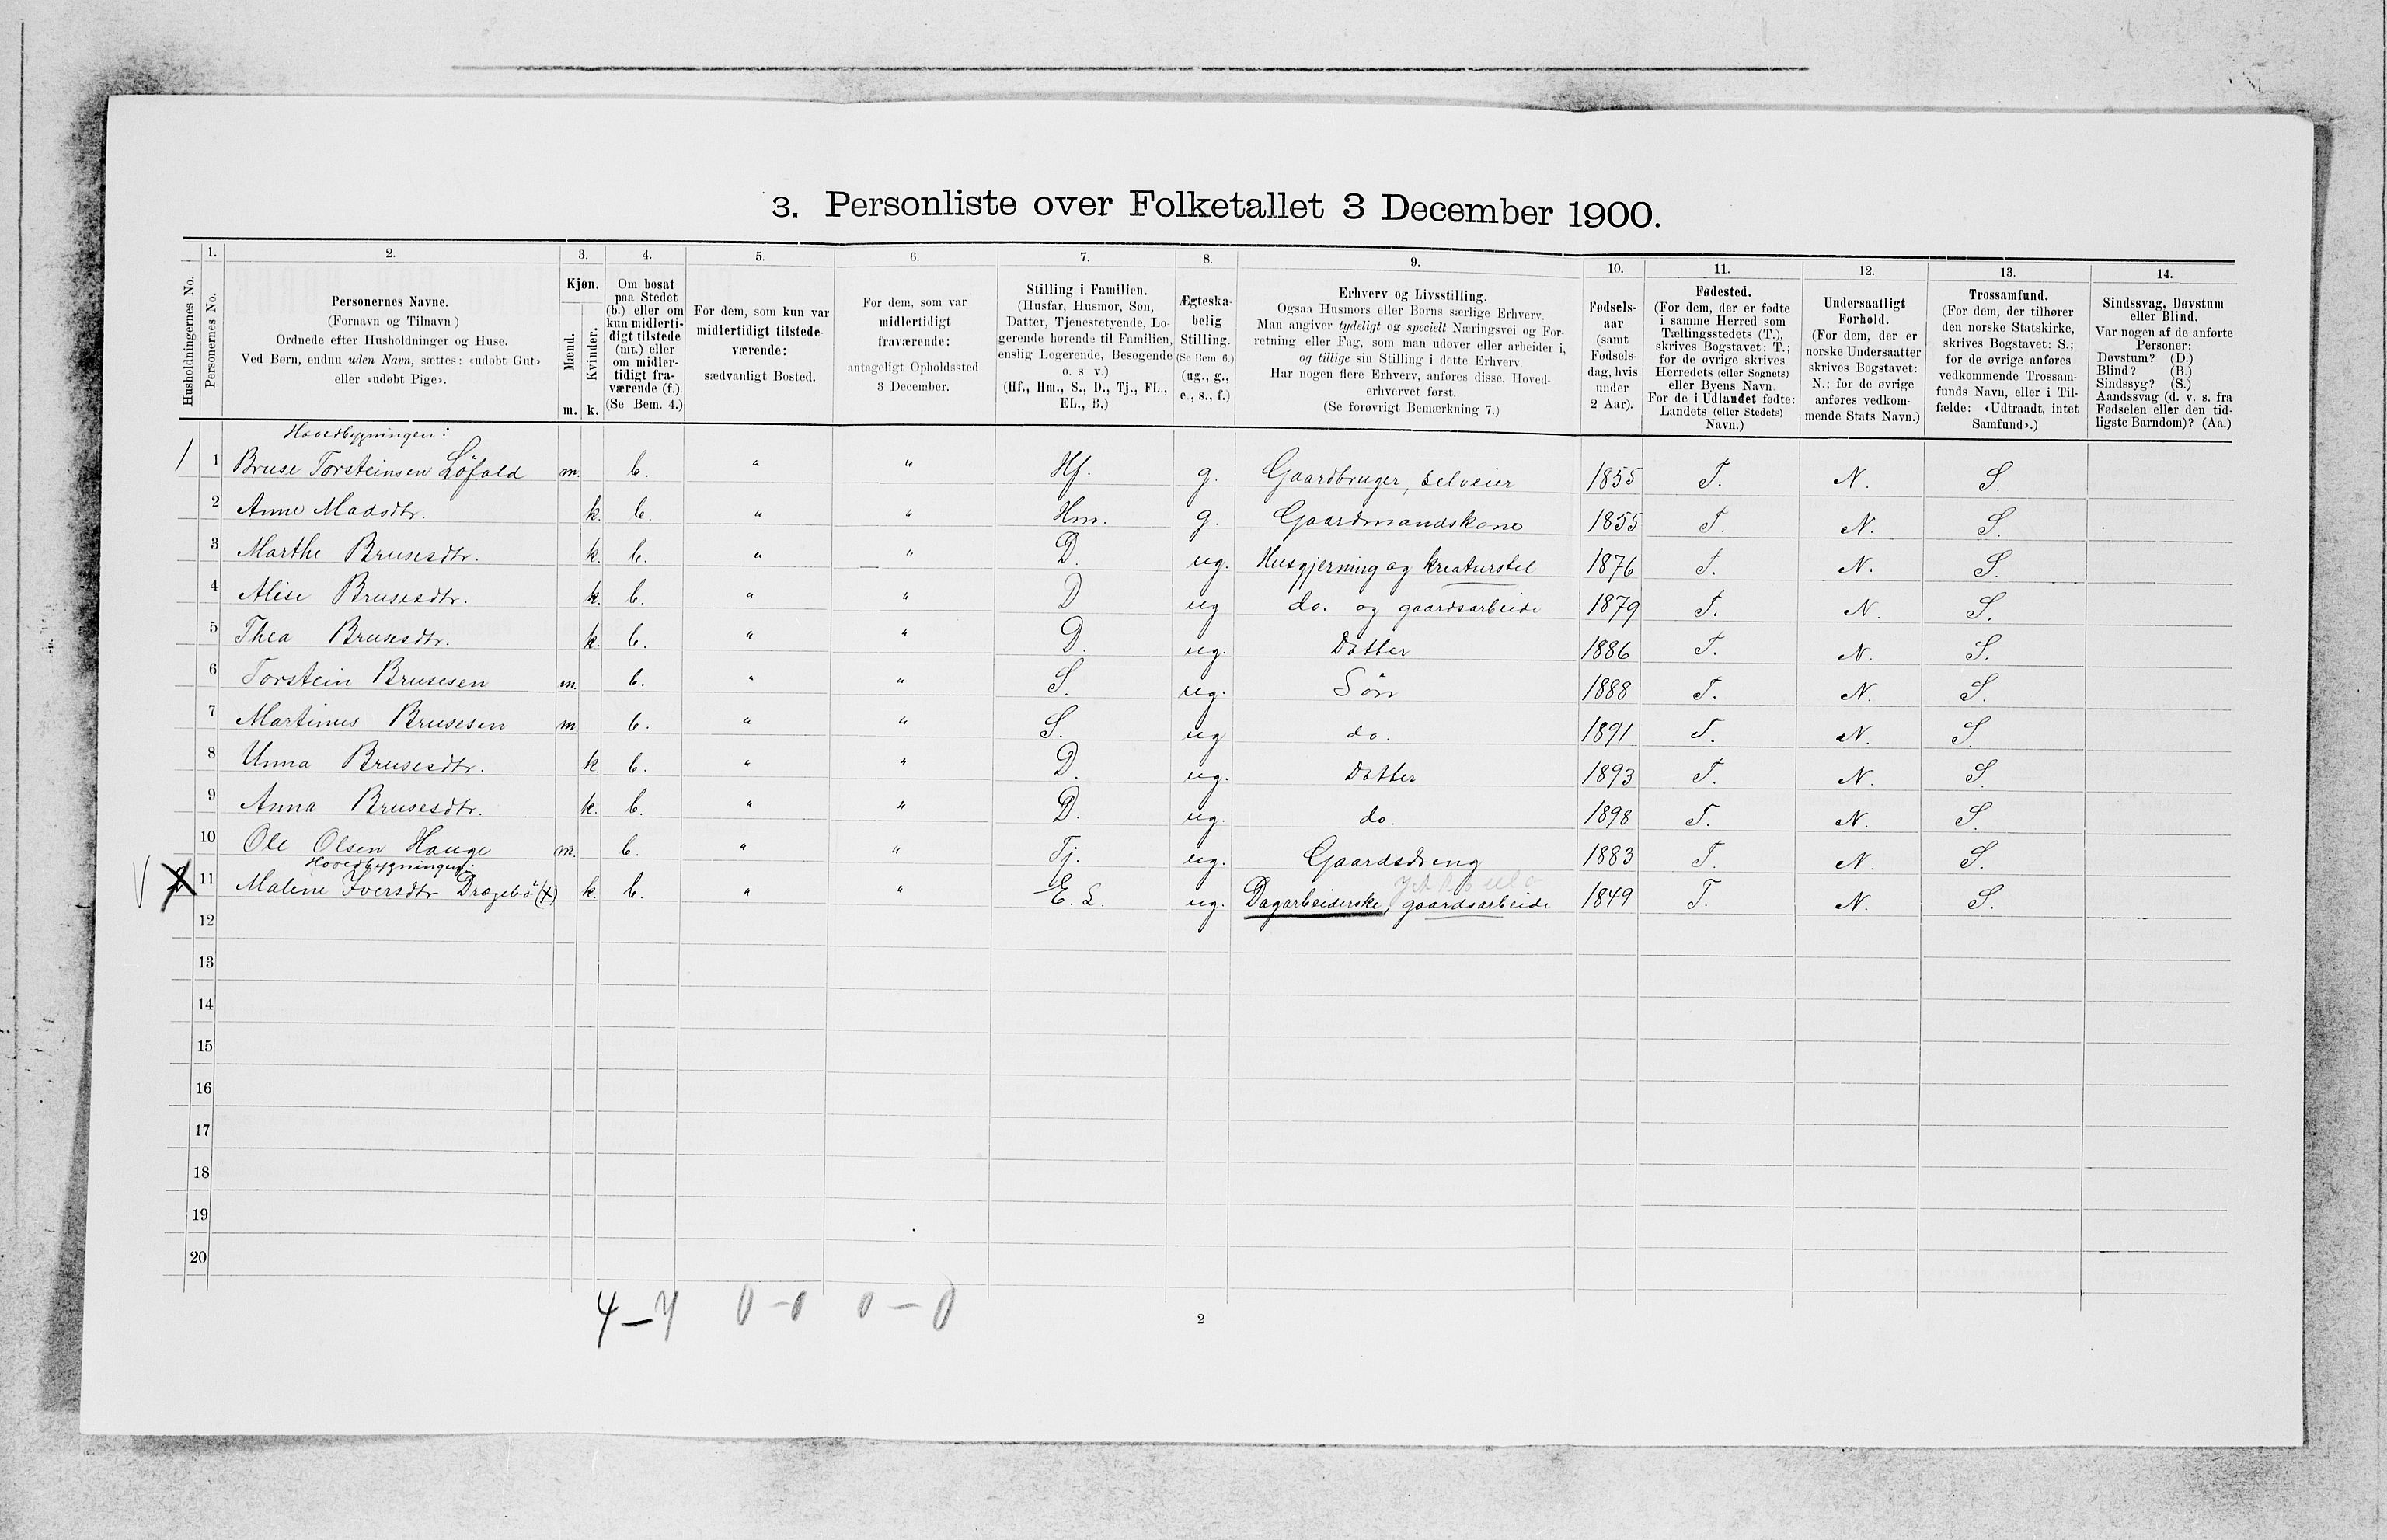 3. Personliste over Folketallet 3 December 1900.
1. 2. 3. 4. 5. 6. 7. 8. 9. 10. 11. 12. 13. 14.
Husholdningernes No.
Personernes No.
Personernes Navne.
(Fornavn og Tilnavn)
Ordnede efter Husholdninger og Huse.
Ved Børn, endnu uden Navn, sættes: «udøbt Gut»
eller «udøbt Pige».
Kjøn.
Mænd.
Kvinder.
m. k.
Om bosat
paa Stedet
(b.) eller om
kun midlerti-
digt tilstede
(mt.) eller
om midler-
tidigt fra-
værende (f.).
(Se Bem. 4.)
For dem, som kun var
midlertidigt tilstede-
værende:
sædvanligt Bosted.
For dem, som var
midlertidigt
fraværende:
antageligt Opholdssted
3 December.
Stilling i Familien.
(Husfar, Husmor, Søn,
Datter, Tjenestetyende, Lo-
gerende hørende til Familien,
enslig Logerende, Besøgende
o. s v.)
(Hf., Hm., S., D., Tj., FL.,
EL., B.)
Ægteska-
belig
Stilling.
(Se Bem. 6.)
(ug., g.,
e., s., f.)
Erhverv og Livsstilling.
Ogsaa Husmors eller Børns særlige Erhverv.
Man angiver tydeligt og specielt Næringsvei og For-
retning eller Fag, som man udøver eller arbeider i,
og tillige sin Stilling i dette Erhverv
Har nogen flere Erhverv, anføres disse, Hoved-
erhvervet først.
(Se forøvrigt Bemærkning 7.)
Fødsels-
aar
(samt
Fødsels-
dag, hvis
under
2 Aar).
Fødested.
(For dem, der er fødte
i samme Herred som
Tællingsstedets (T.),
skrives Bogstavet: T.;
for de øvrige skrives
Herredets (eller Sognets)
eller Byens Navn.
For de i Udlandet fødte:
Landets (eller Stedets)
Navn.)
Undersaatligt
Forhold.
(For dem, der er
norske Undersaatter
skrives Bogstavet:
N.; for de øvrige
anføres vedkom-
mende Stats Navn.)
Trossamfund.
(For dem, der tilhører
den norske Statskirke,
skrives Bogstavet: S.;
for de øvrige anføres
vedkommende Trossam-
funds Navn, eller i Til-
fælde: «Udtraadt, intet
Samfund».)
Sindssvag, Døvstum
eller Blind.
Var nogen af de anførte
Personer:
Døvstum? (D.)
Blind? (B.)
Sindssyg? (S.)
Aandssvag (d. v. s. fra
Fødselen eller den tid-
ligste Barndom)? (Aa.)
Hovedbygningen:
1 1 Bruse Torsteinsen Löfald m. b. " " Hf. g. Gaardbruger, selveier 1855 T. N. S.
2 Anne Madsdtr. k. b. " " Hm. g. Gaardmandskone 1855 T. N. S.
3 Marthe Brusesdtr. k. b. " " D. ug. Husgjerning og kreaturstel 1876 T. N. S.
4 Alise Brusesdtr. k. b. " " D ug do. og gaardsarbeide 1879 T. N. S.
5 Thea Brusesdtr. k. b. " " D. ug. Datter 1886 T. N. S.
6 Torstein Brusesen m. b. " " S. ug. Sön 1888 T. N. S.
7 Martinus Brusesen m. b. " " S. ug do. 1891 T. N. S.
8 Unna Brusesdtr. k. b. " " D. ug. Datter 1893 T. N. S.
9 Anna Brusesdtr. k. b. " " D. ug. do. 1898 T. N. S.
10 Ole Olsen Hauge m. b. " " Tj. ug. Gaardsdreng 1883 T. N. S.
Hovedbygningen:
11 Malene Iversdtr Dragebö (x) k. b. " " E. L. ug. Dagarbeiderske, gaardsarbeide 1849 T. N. S.
12
13
14
15
16
17
18
19
20
4 – 7 0 – 0 0 – 0
2